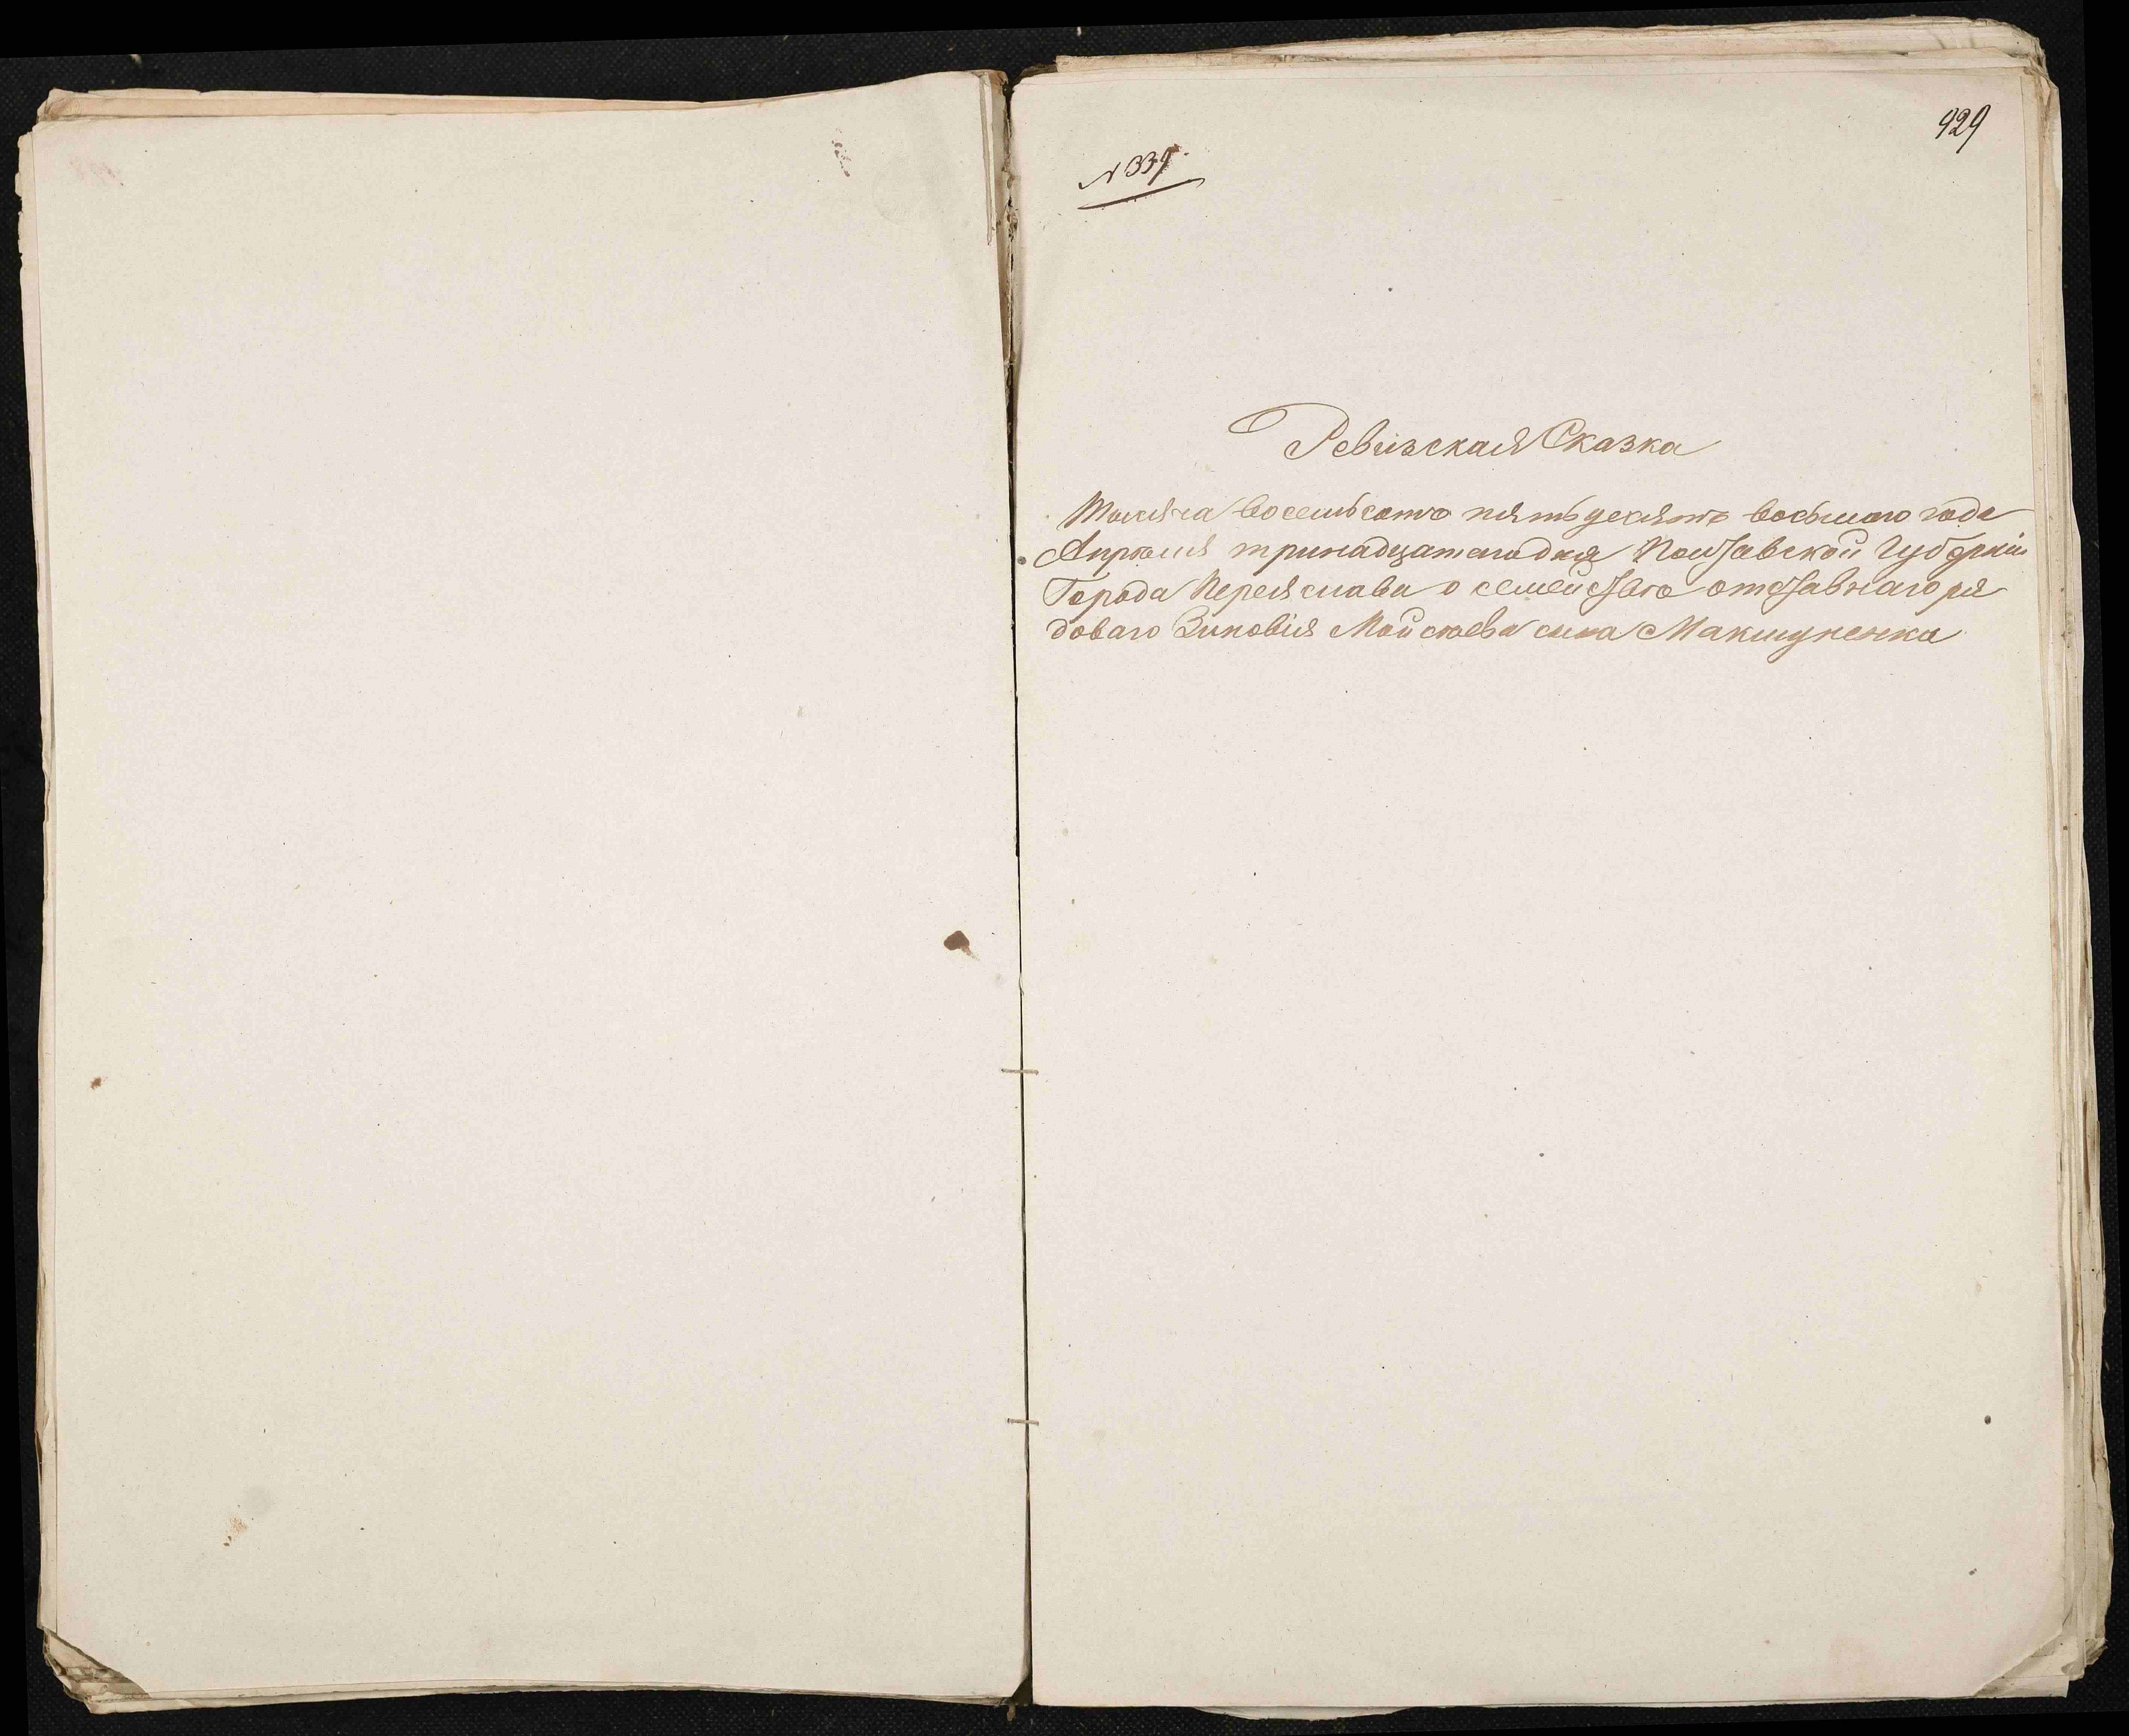 929
№ 339.
Ревизская Сказка
Тысяча восемьсотъ пятьдесятъ восьмаго года
Апрѣля тринадцатаго дня Полтавской Губерніи
Города Переяслава о семействѣ отставнаго ря
доваго Зиновія Мойсѣева сына Макшуненка